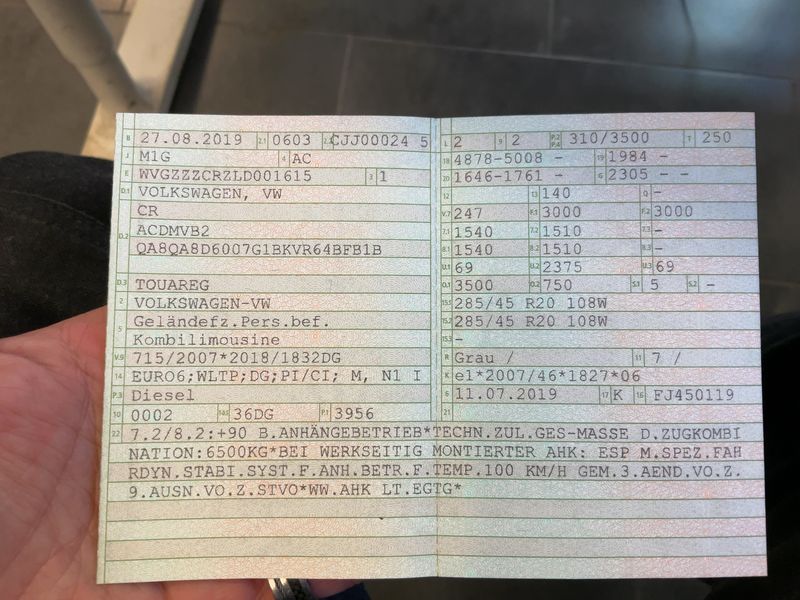 B 27.08.2019 2.1 0603 2.2 CJJ00024 5
J M1G 4 AC
E WVGZZZCRZLD001615 3 1
D.1 VOLKSWAGEN, VW
CR
D.2 ACDMVB2
QA8QA8D6007G1BKVR64BFB1B
D.3 TOUAREG
2 VOLKSWAGEN-VW
5 Geländefz.Pers.bef.
Kombilimousine
V.9 715/2007*2018/1832DG
14 EURO6;WLTP;DG;PI/CI; M, N1 I
P.3 Diesel
10 0002 14.1 36DG P.1 3956
L 2 9 2 P.2 P.4 310/3500 T 250
18 4878-5008 - 19 1984 -
20 1646-1761 - G 2305 - -
12 13 140 Q -
V.7 247 F.1 3000 F.2 3000
7.1 1540 7.2 1510 7.3 -
8.1 1540 8.2 1510 8.3 -
U.1 69 U.2 2375 U.3 69
O.1 3500 O.2 750 S.1 5 S.2 -
15.1 285/45 R20 108W
15.2 285/45 R20 108W
15.3 -
R Grau / 11 7 /
K e1*2007/46*1827*06
6 11.07.2019 17 K 16 FJ450119
21
22 7.2/8.2:+90 B.ANHÄNGEBETRIEB*TECHN.ZUL.GES-MASSE D.ZUGKOMBI
NATION:6500KG*BEI WERKSEITIG MONTIERTER AHK: ESP M.SPEZ.FAH
RDYN.STABI.SYST.F.ANH.BETR.F.TEMP.100 KM/H GEM.3.AEND.VO.Z.
9.AUSN.VO.Z.STVO*WW.AHK LT.EGTG*